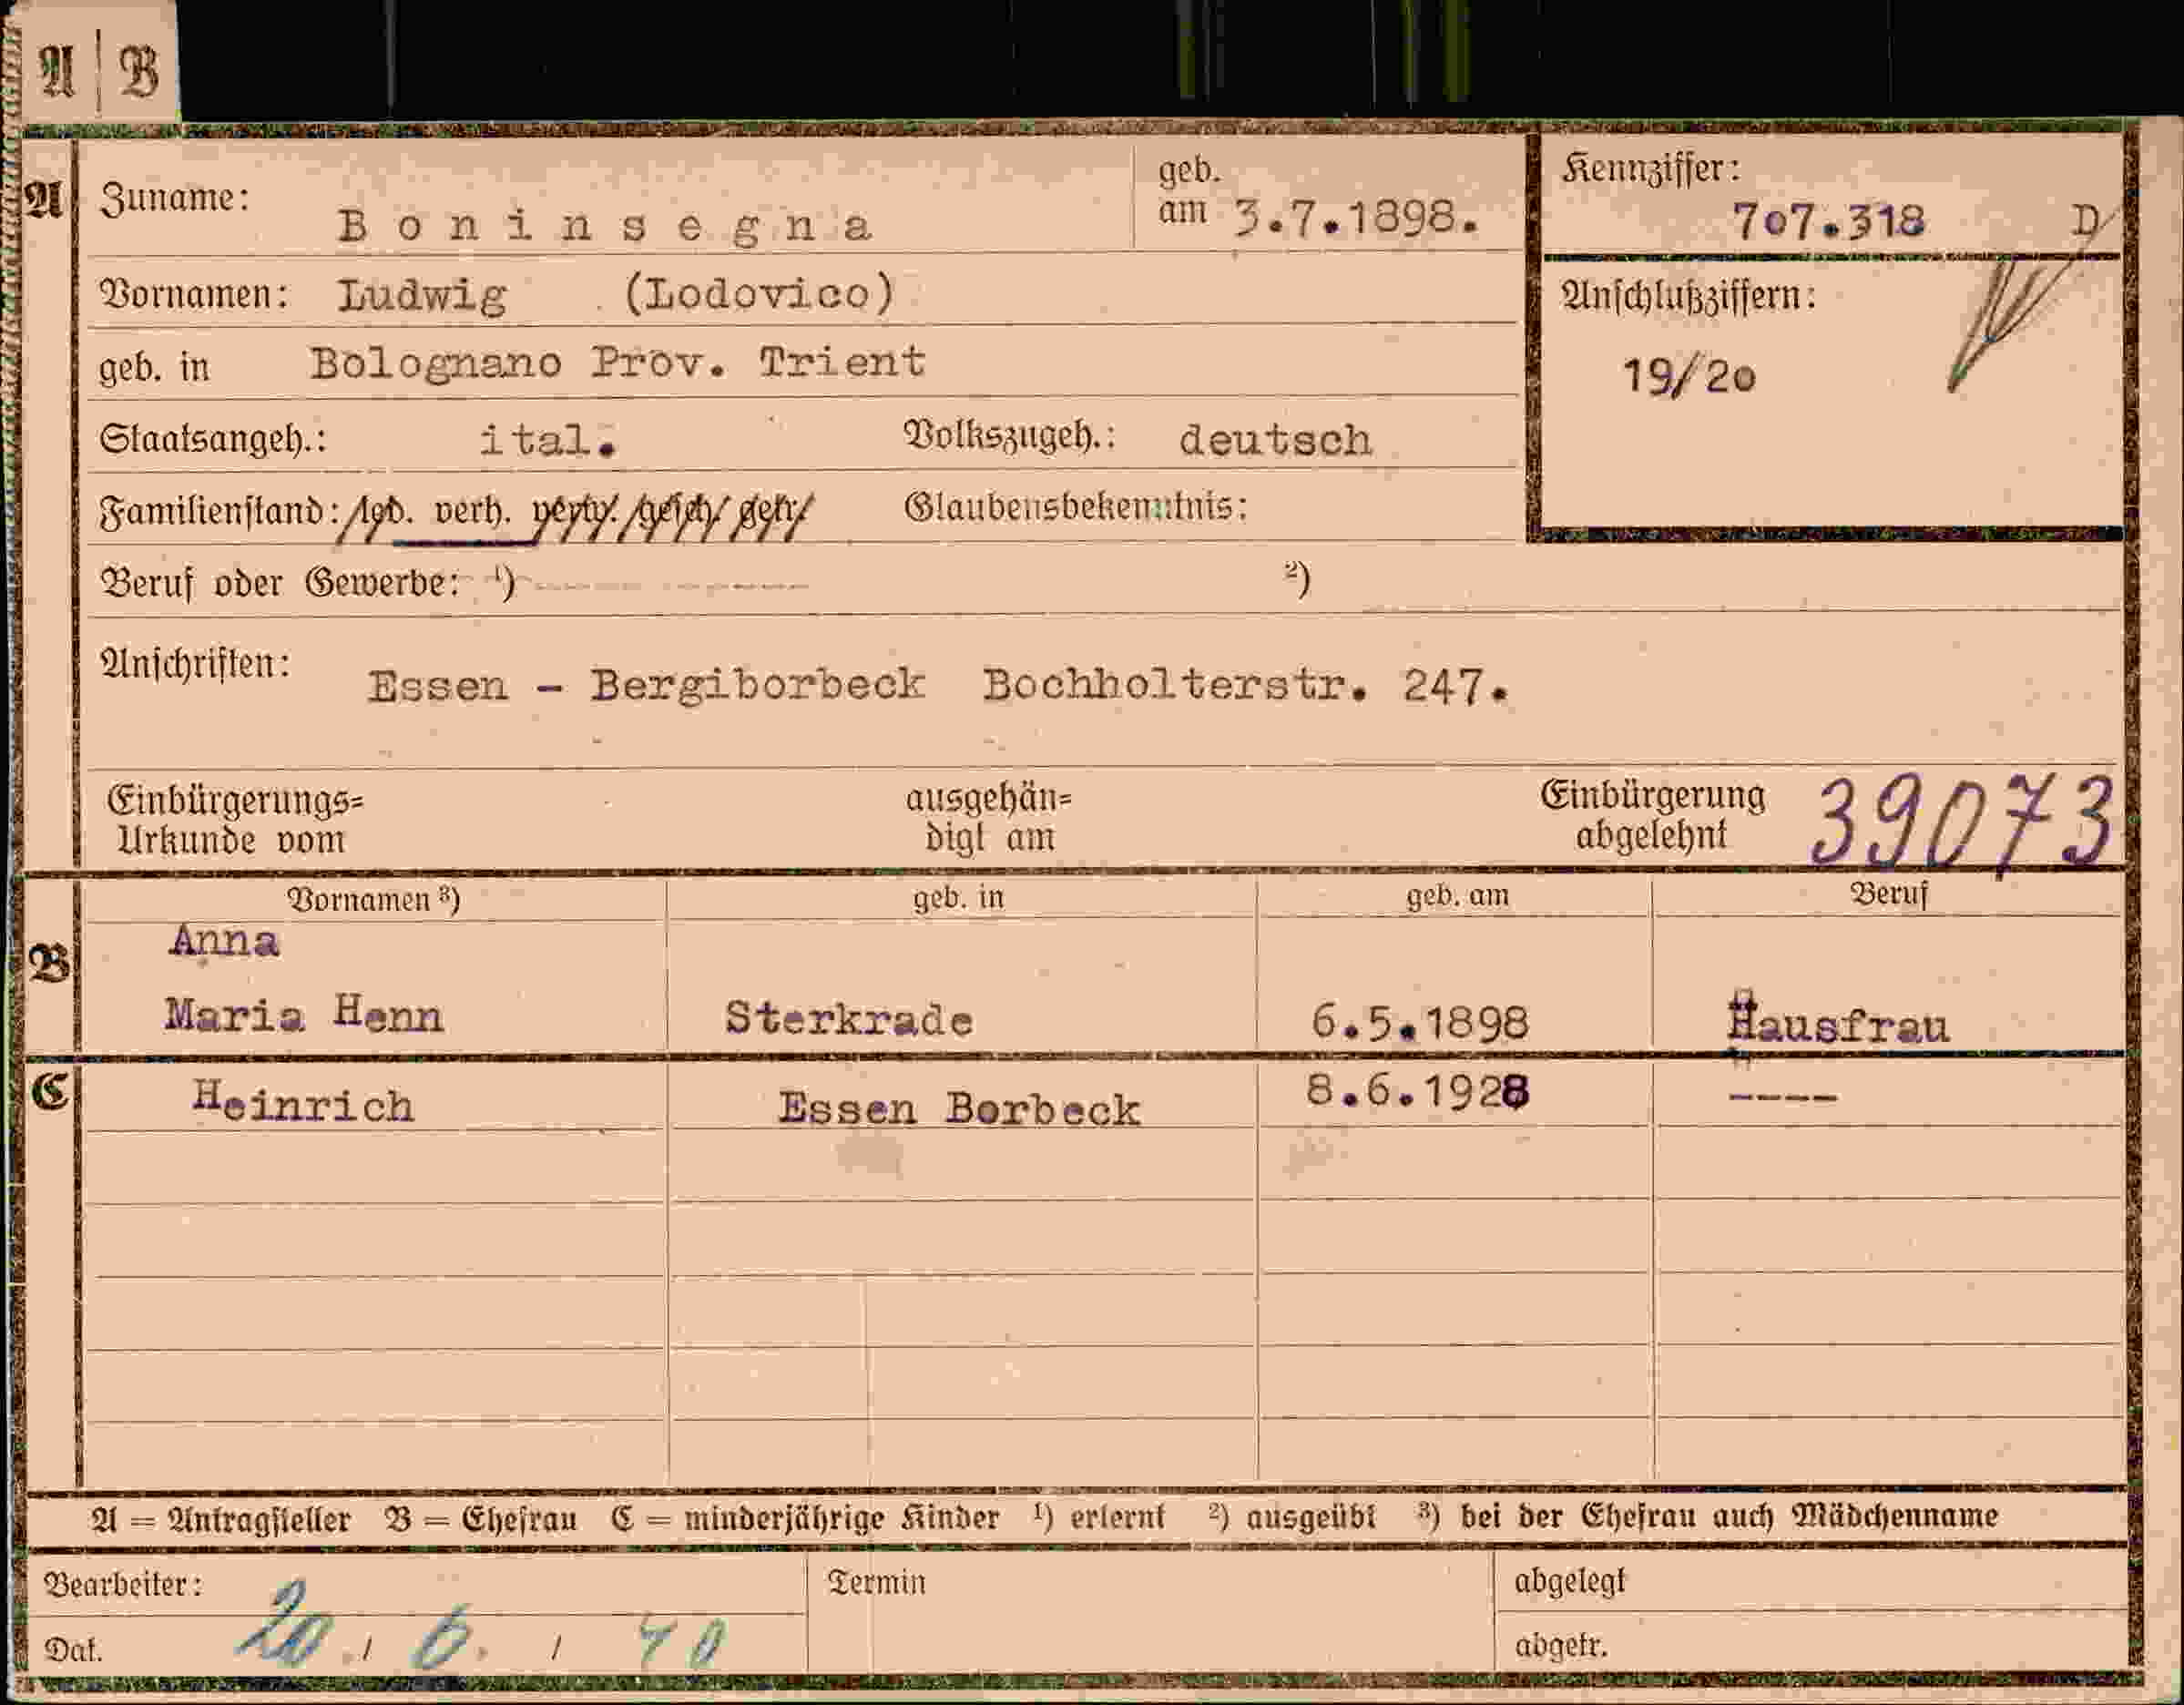 A | B
A Zuname: Boninsegna geb. am 3.7.1898. Kennziffer: 707.318 D
Vornamen: Ludwig (Lodovico) Anschlußziffern:
19/20
geb. in Bolognano Prov. Trient
Staatsangeh.: ital. Volkszugeh.: deutsch
Familienstand: led. verh. verw. gesch. getr. Glaubensbekenntnis:
Beruf oder Gewerbe: ¹) ---- ---- ²)
Anschriften: Essen - Bergiborbeck Bochholterstr. 247.
Einbürgerungs= ausgehän= Einbürgerung 39073
Urkunde vom digt am abgelehnt
Vornamen ³) geb. in geb. am Beruf
B Anna
Maria Henn Sterkrade 6.5.1898 Hausfrau
C Heinrich Essen Borbeck 8.6.1928 ----
A = Antragsteller B = Ehefrau C = minderjährige Kinder ¹) erlernt ²) ausgeübt ³) bei der Ehefrau auch Mädchenname
Bearbeiter: Termin abgelegt
Dat. 20. / 6. / 40 abgetr.